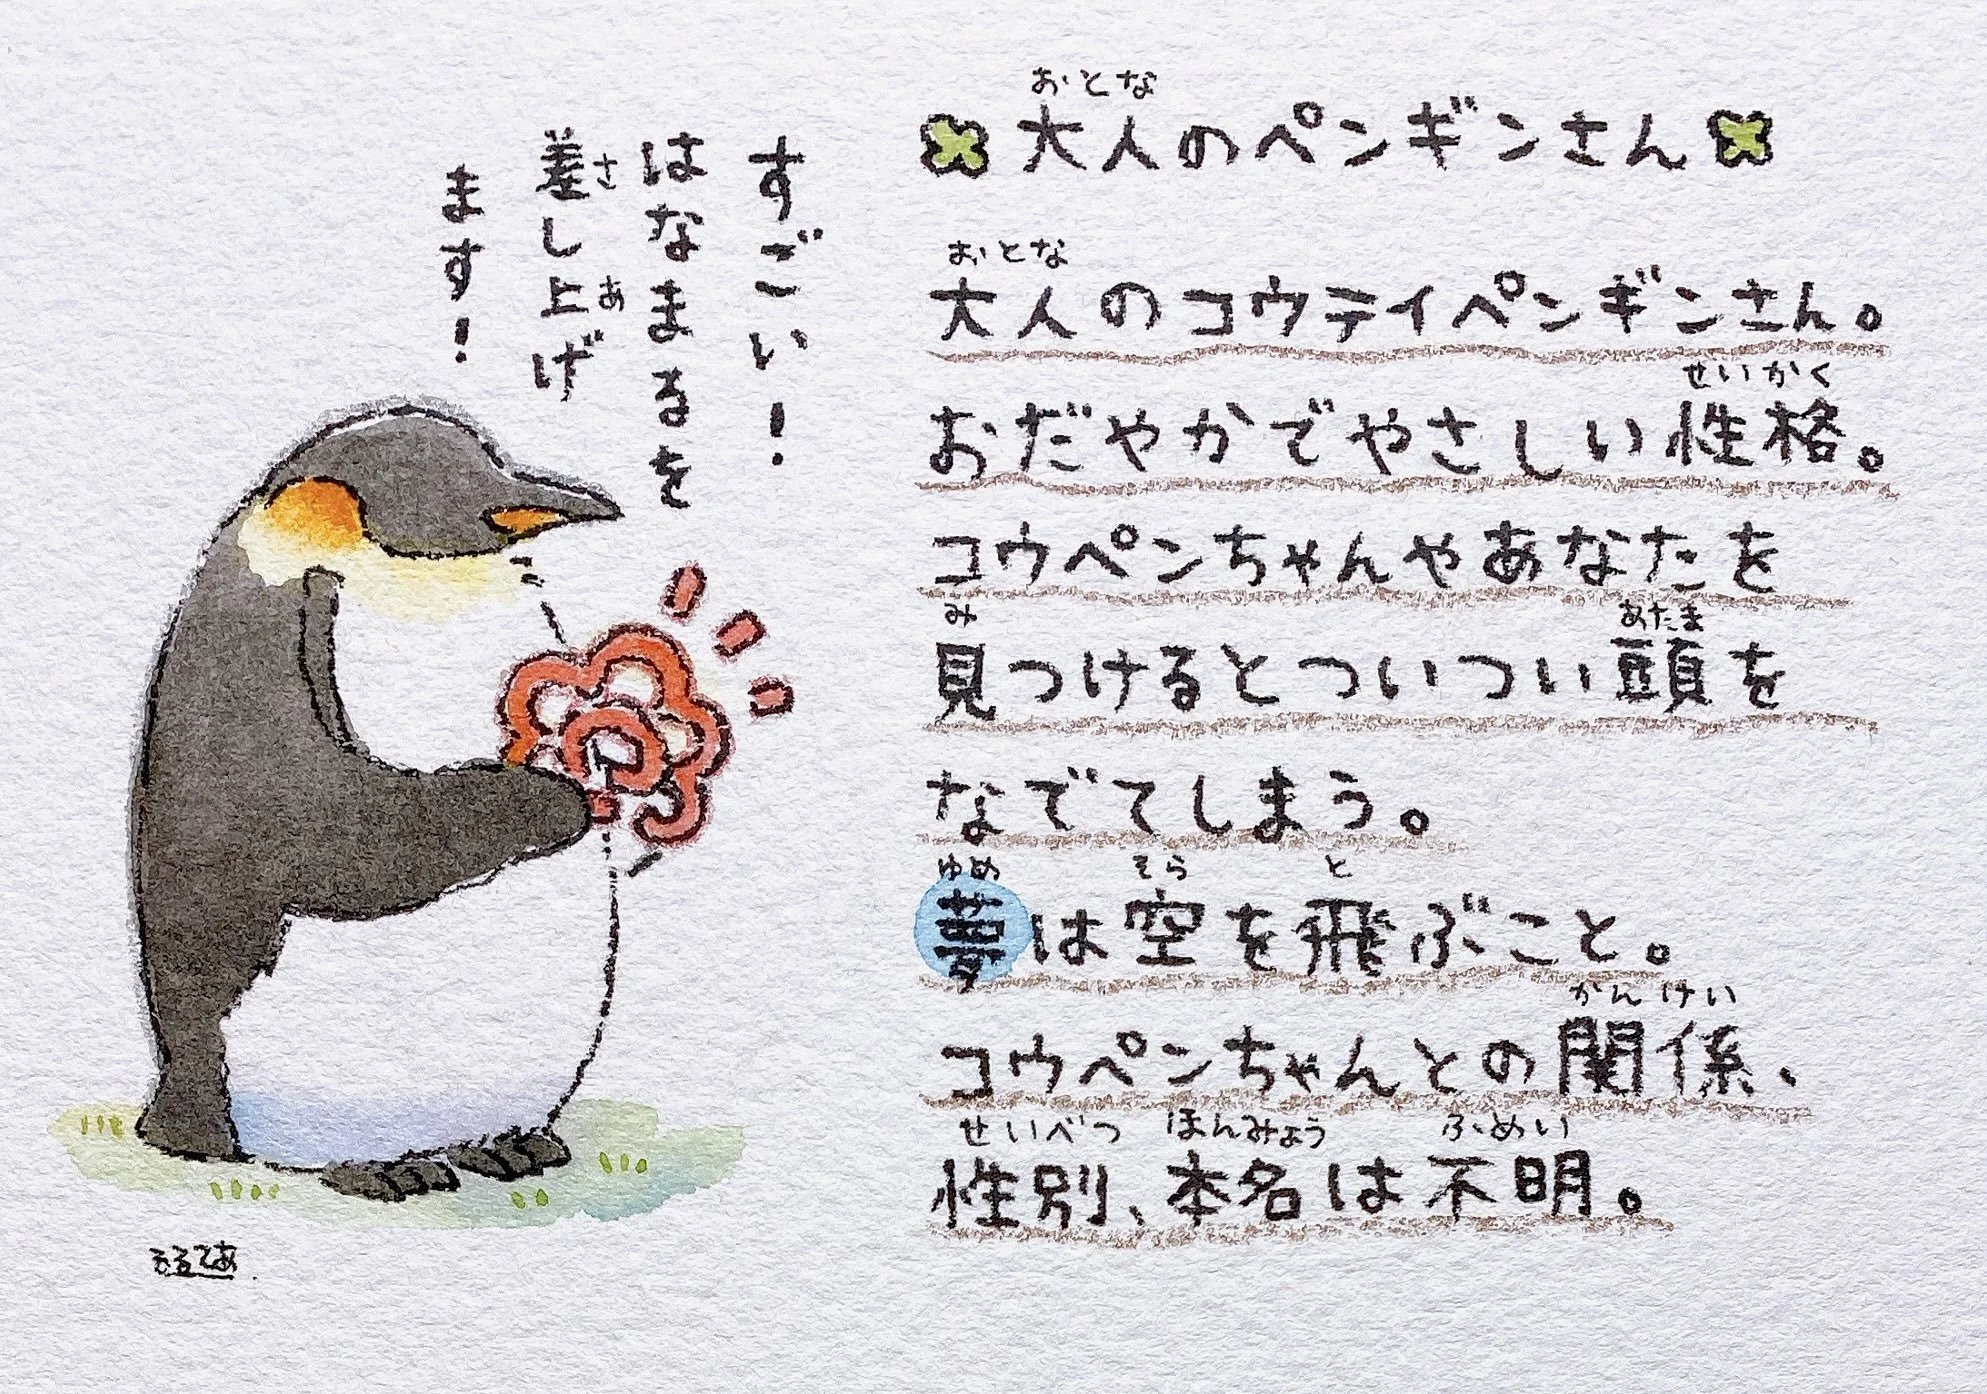 大人のペンギンさん
大人のコウテイペンギンさん。
おだやかでやさしい性格。
コウペンちゃんやあなたを
見つけるとついつい頭を
なでてしまう。
夢は空を飛ぶこと。
コウペンちゃんとの関係、
性別、本名は不明。
すごい!
はなまるを
差し上げ
ます!
るるてあ